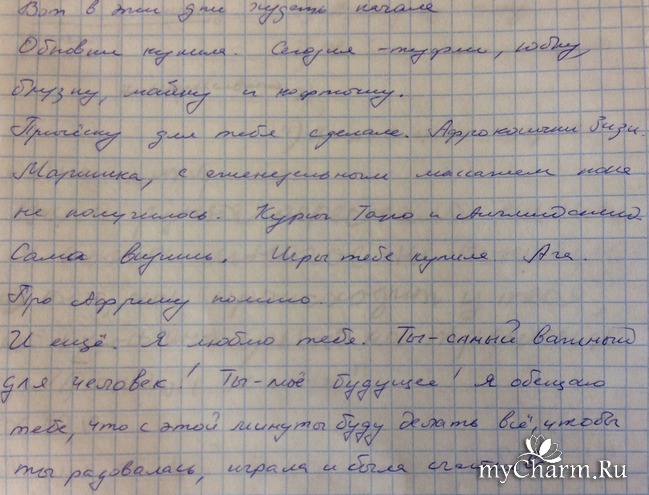 Вот в эти дни худеть начала
Обновки купила. Сегодня - туфли, юбку,
блузку, майку и кофточку.
Причёску для тебя сделала. Афрокосички Зизи.
Маришка, с еженедельным массажем пока
не получилось. Курсы Таро и Английский.
Сама видишь. Игры тебе купила. Ага.
Про Африку помню.
И ещё. Я люблю тебя. Ты - самый важный
для человек! Ты - моё будущее! Я обещаю
тебе, что с этой минуты буду делать всё, чтобы
ты радовалась, играла и была
myCharm.Ru